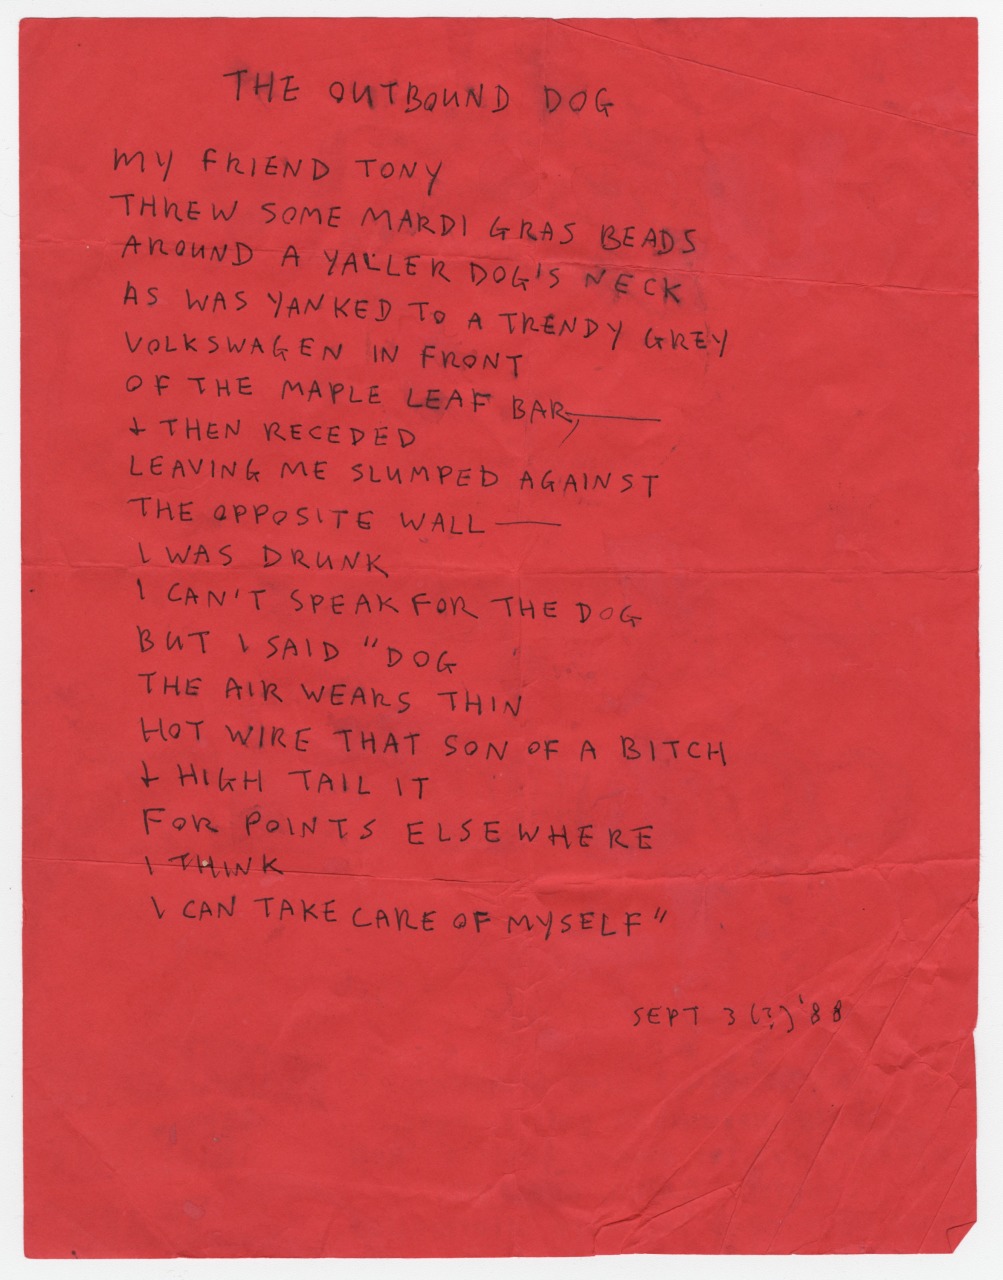 THE OUTBOUND DOG
MY FRIEND TONY
THREW SOME MARDI GRAS BEADS
AROUND A YALLER DOG'S NECK
AS WAS YANKED TO A TRENDY GREY
VOLKSWAGEN IN FRONT
OF THE MAPLE LEAF BAR,—
+ THEN RECEDED
LEAVING ME SLUMPED AGAINST
THE OPPOSITE WALL —
I WAS DRUNK
I CAN'T SPEAK FOR THE DOG
BUT I SAID "DOG
THE AIR WEARS THIN
HOT WIRE THAT SON OF A BITCH
+ HIGH TAIL IT
FOR POINTS ELSEWHERE
I THINK
I CAN TAKE CARE OF MYSELF"
SEPT 3 (?) '88